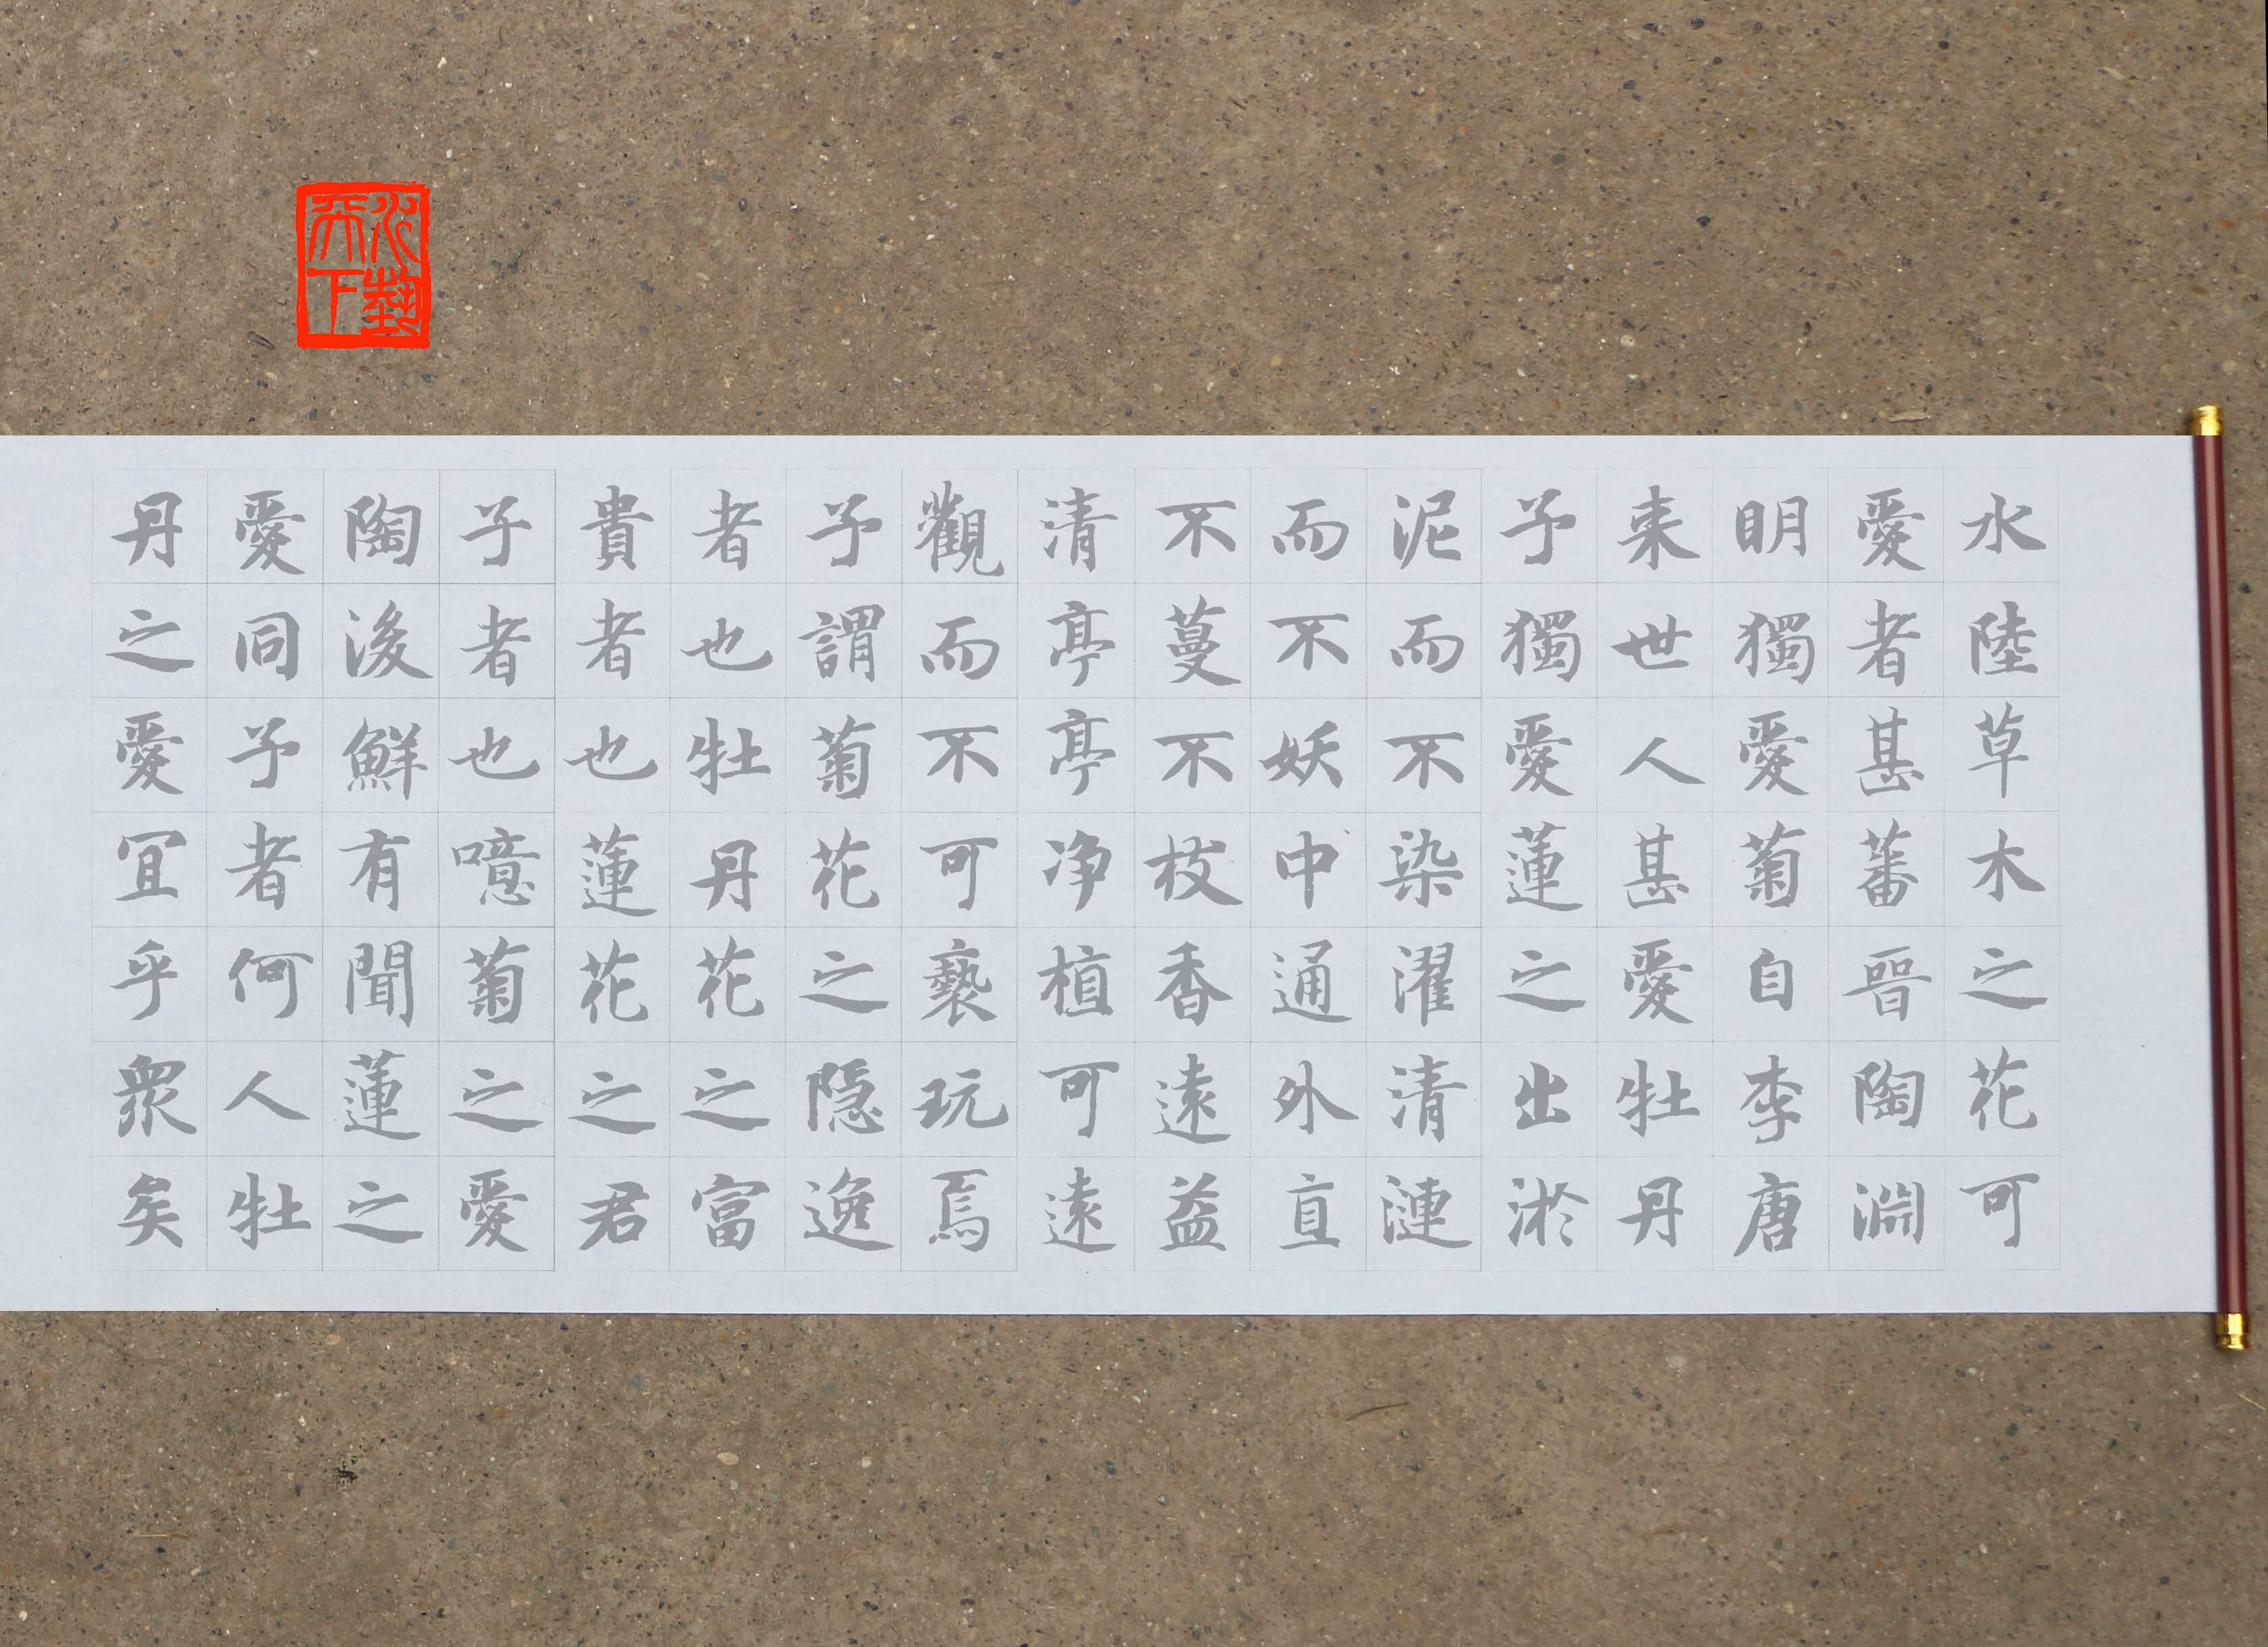 水陸草木之花可
愛者甚蕃晉陶淵
明獨愛菊自李唐
来世人甚愛牡丹
予獨愛蓮之出淤
泥而不染濯清漣
而不妖中通外直
不蔓不枝香遠益
清亭亭净植可遠
觀而不可褻玩焉
予謂菊花之隠逸
者也牡丹花之富
貴者也蓮花之君
子者也噫菊之愛
陶後鮮有聞蓮之
愛同予者何人牡
丹之愛宜乎衆矣
水墊天下